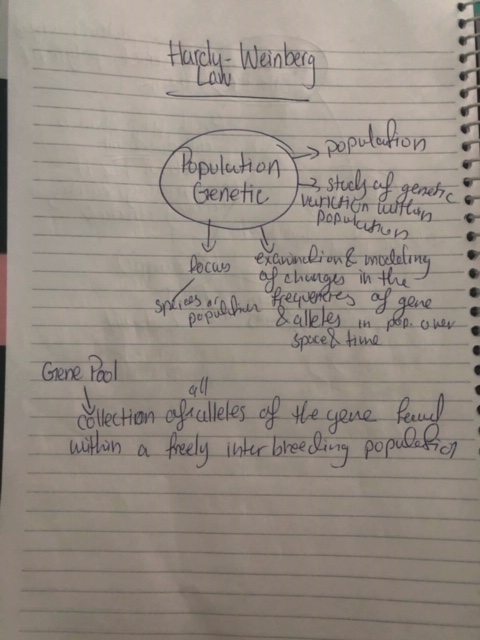 Hardy-Weinberg
Law
Population
Genetic
population
study of genetic
variation within
population
focus
species or
population
examination & modeling
of changes in the
frequencies of gene
& alleles in pop. over
space & time
Gene Pool
all
collection of alleles of the gene found
within a freely interbreeding population